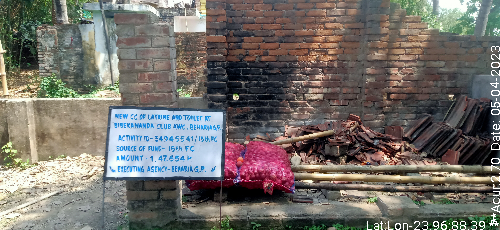 NEW CC OF LATRINE AND TOILET AT
BIBEKANANDA CLUB
ACTIVITY ID- 34945541/15th FC
SOURCE OF FUND- 15th FC
AMOUNT- 1,47,654/-
EXECUTING AGENCY- BEHARIA G.P.
Lat:Lon-23.96:88.39
Date:05-04-2023